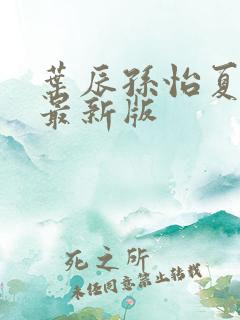 葉辰孫怡夏
最新版
死之所
未经同意禁止转载